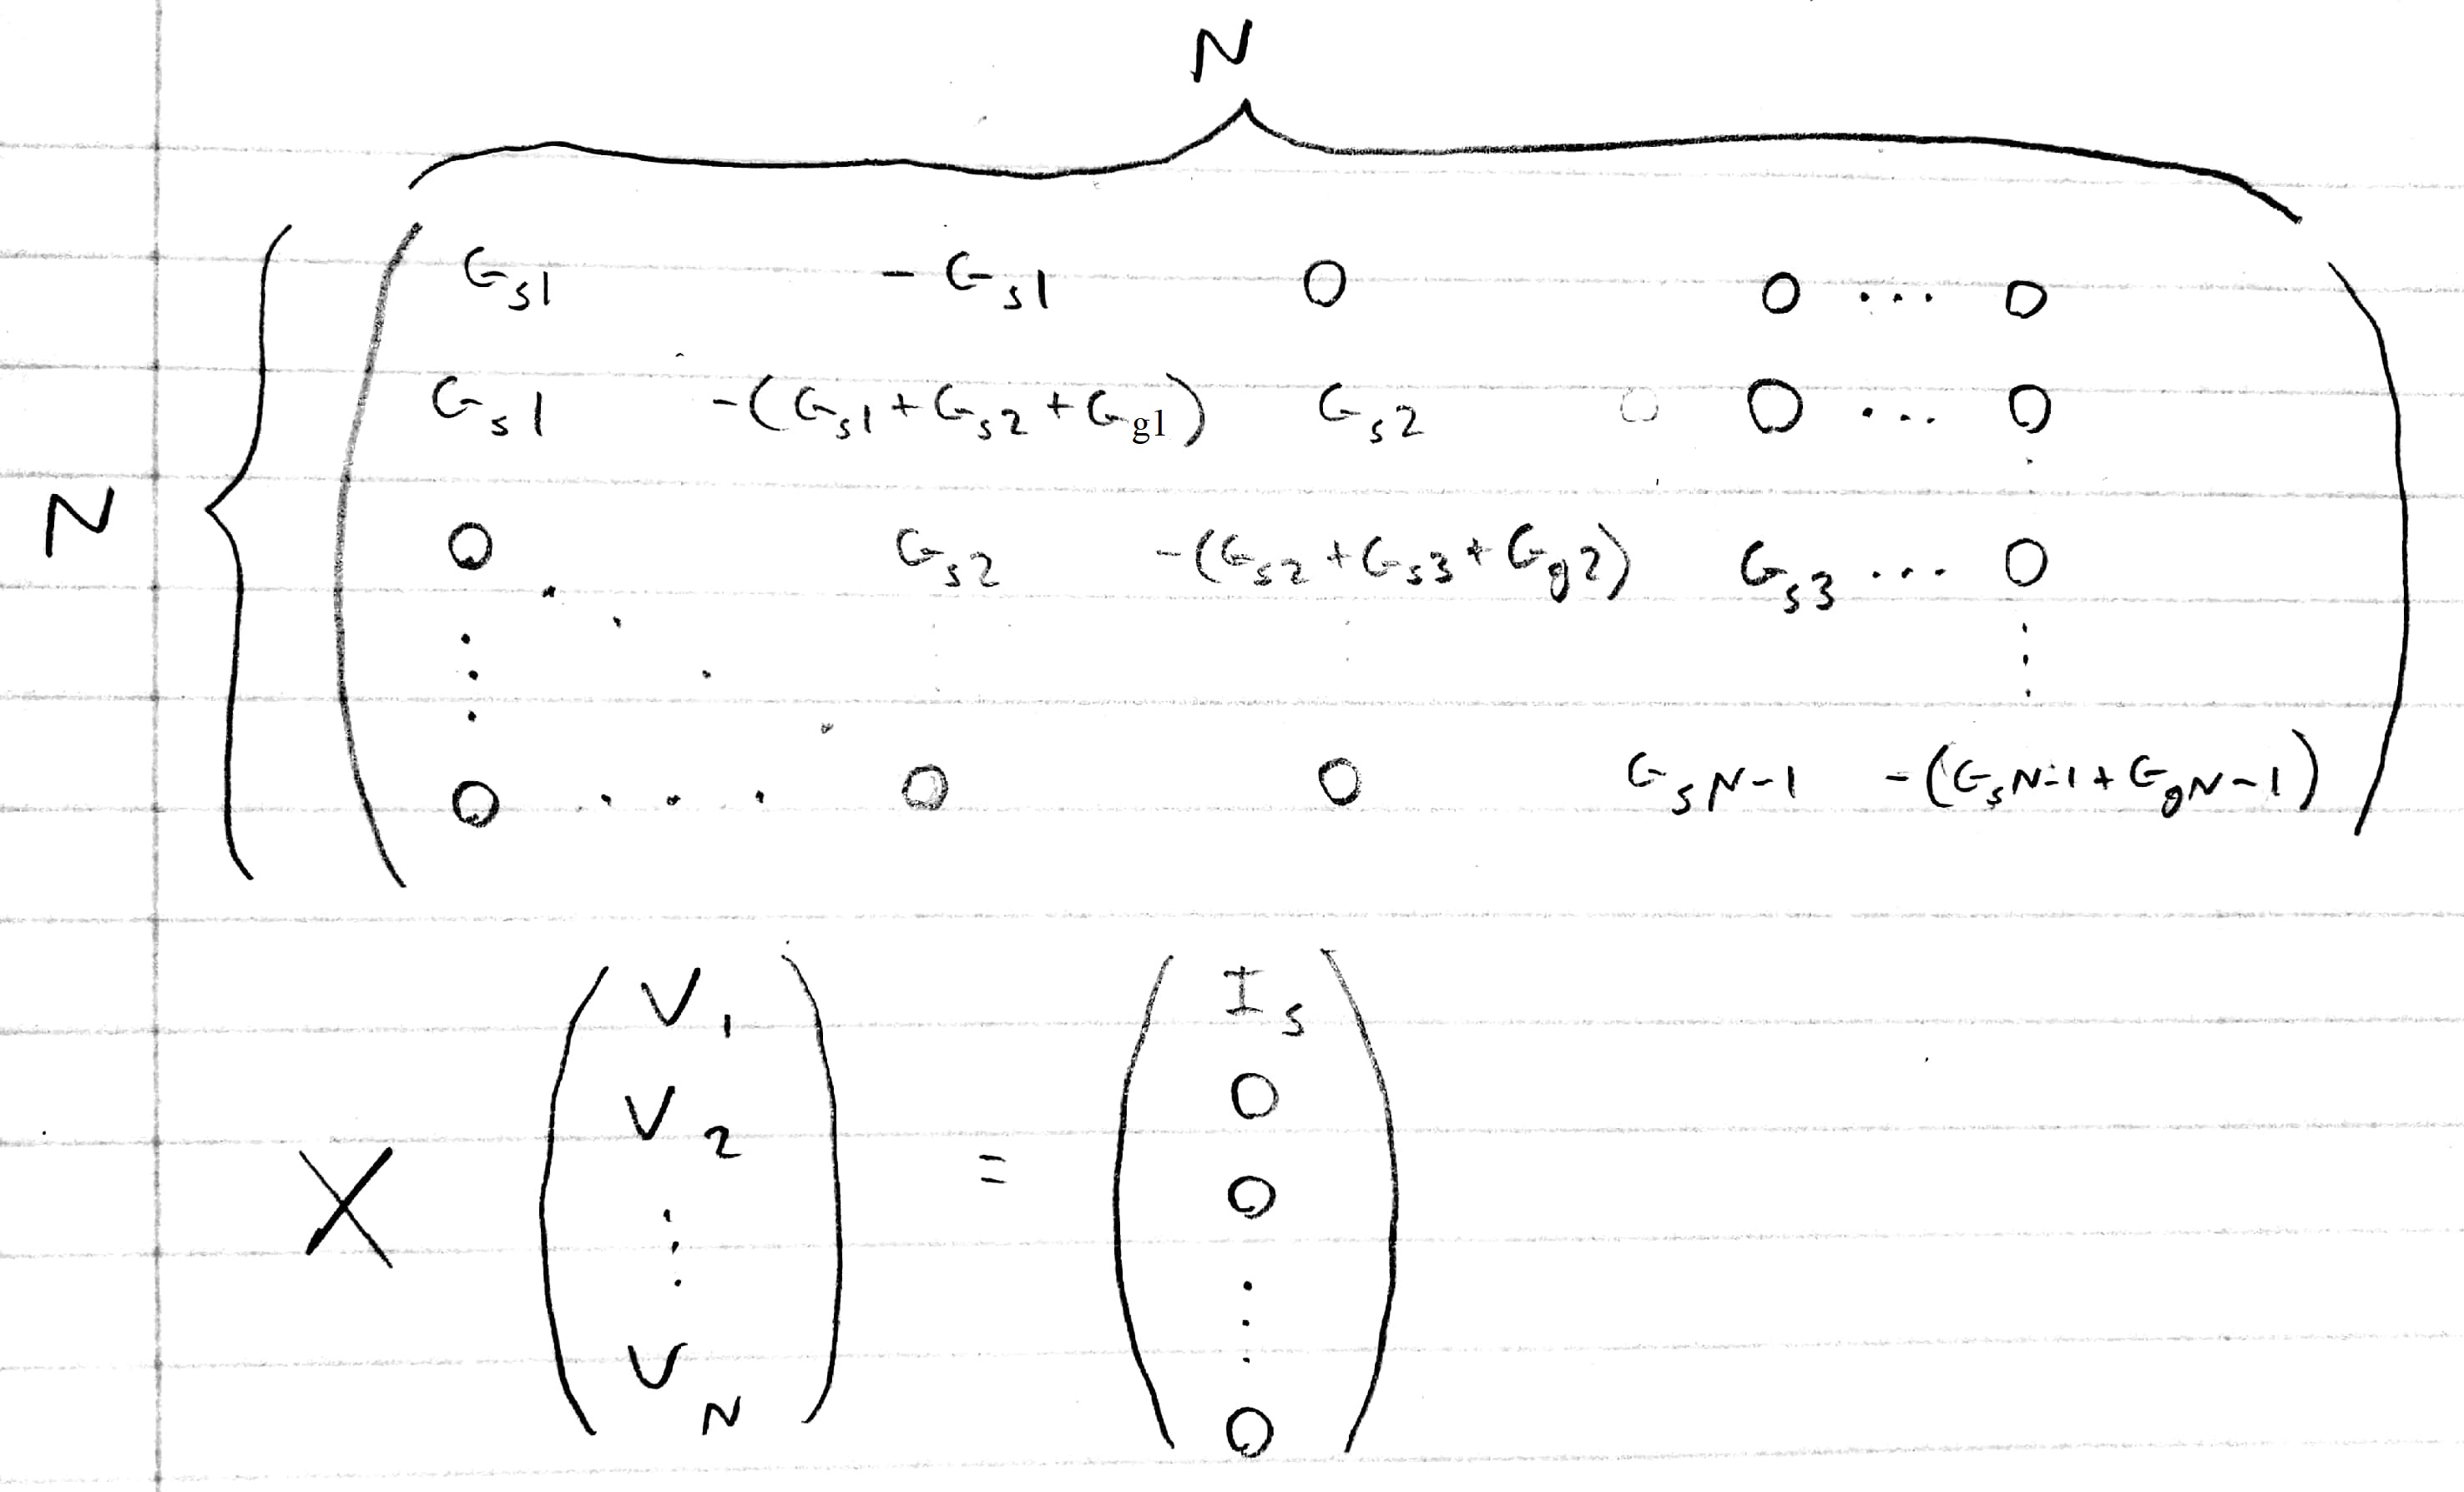 N
G_s1 -G_s1 0 0 ... 0
G_s1 -(G_s1+G_s2+G_g1) G_s2 0 0 ... 0
N
0 G_s2 -(G_s2+G_s3+G_g2) G_s3 ... 0
0 ... 0 0 G_sN-1 -(G_sN-1+G_gN-1)
X (V_1 V_2 ⋮ V_N) = (I_s 0 0 ⋮ 0)